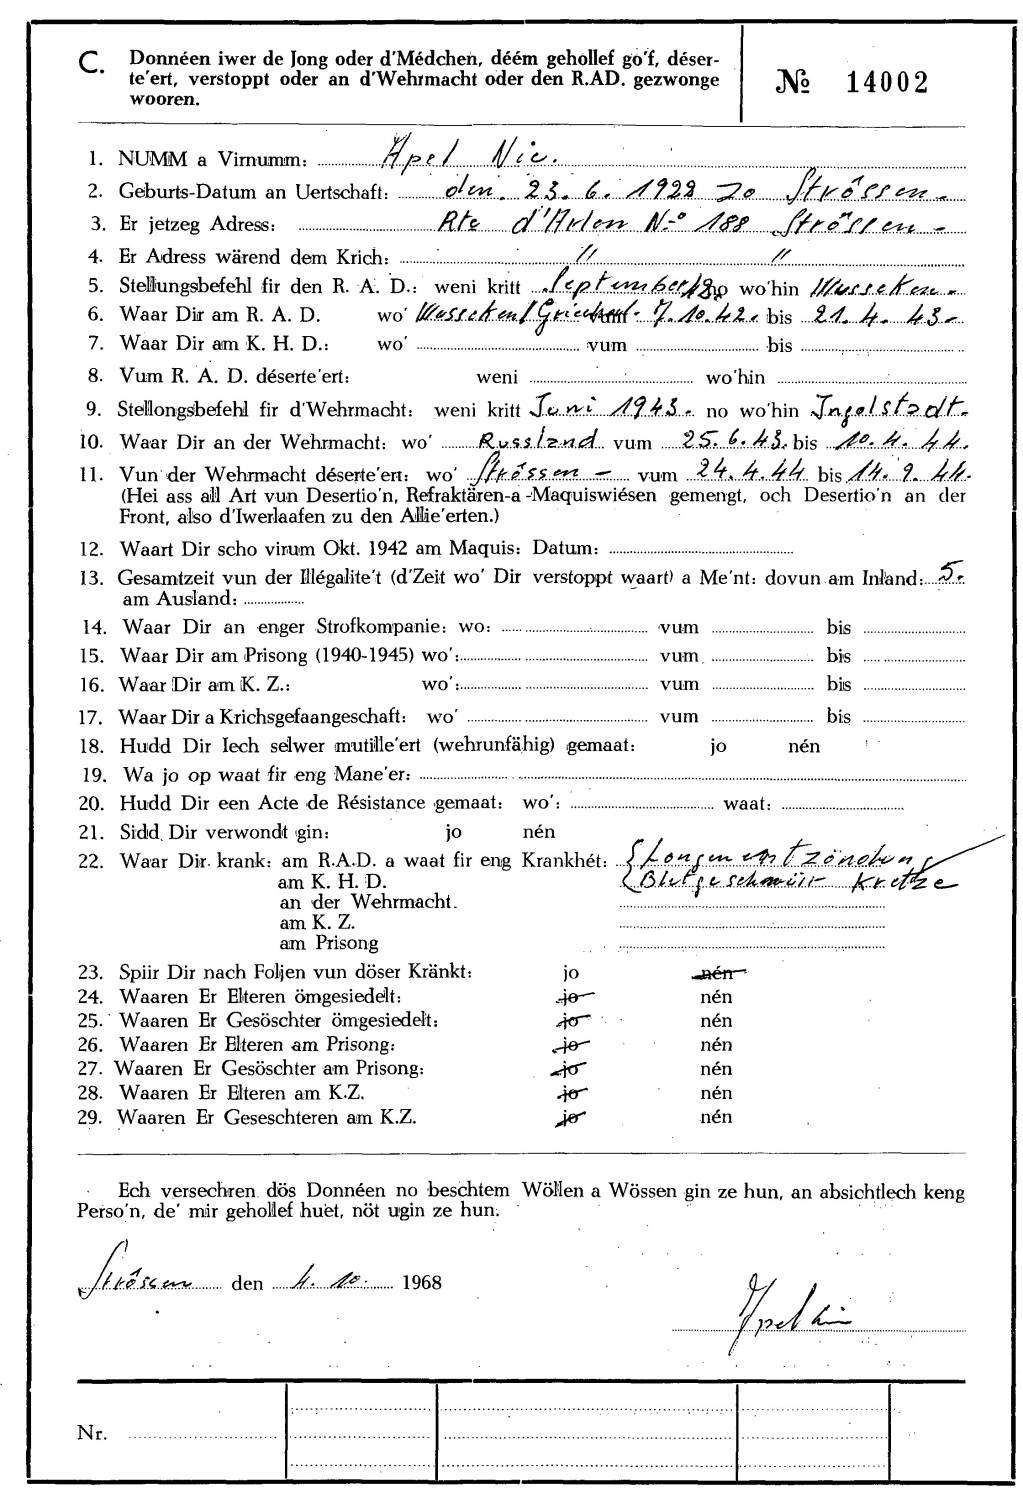 C. Donnéen iwer de Jong oder d'Médchen, déém gehollef go'f, déser-
te'ert, verstoppt oder an d'Wehrmacht oder den R.AD. gezwonge
wooren.
№ 14002
1. NUMM a Virnumm: Apel Nic.
2. Geburts-Datum an Uertschaft: den 23.6.1922 zo Strôssen
3. Er jetzeg Adress: Rte d'Arlon N° 188 Strôssen
4. Er Adress wärend dem Krich: " "
5. Stellungsbefehl fir den R. A. D.: weni kritt September no wo'hin Wusseken
6. Waar Dir am R. A. D. wo' Wusseken/ 7.10.42. bis 21.4.43
7. Waar Dir am K. H. D.: wo' vum bis
8. Vum R. A. D. déserte'ert: weni wo'hin
9. Stellongsbefehl fir d'Wehrmacht: weni kritt Juni 1943. no wo'hin Ingolstadt.
10. Waar Dir an der Wehrmacht: wo' Russland vum 25.6.43. bis 10.4.44.
11. Vun der Wehrmacht déserte'ert: wo' Strôssen vum 24.4.44 bis 14.9.44.
(Hei ass all Art vun Desertio'n, Refraktären-a -Maquiswiésen gemengt, och Desertio'n an der
Front, also d'Iwerlaafen zu den Allie'erten.)
12. Waart Dir scho virum Okt. 1942 am Maquis: Datum:
13. Gesamtzeit vun der Illégalite't (d'Zeit wo' Dir verstoppt waart) a Me'nt: dovun am Inland: 5.
am Ausland:
14. Waar Dir an enger Strofkompanie: wo: vum bis
15. Waar Dir am Prisong (1940-1945) wo': vum bis
16. Waar Dir am K. Z.: wo': vum bis
17. Waar Dir a Krichsgefaangeschaft: wo' vum bis
18. Hudd Dir Iech selwer mutille'ert (wehrunfähig) gemaat: jo nén
19. Wa jo op waat fir eng Mane'er:
20. Hudd Dir een Acte de Résistance gemaat: wo': waat:
21. Sidd Dir verwondt gin: jo nén
22. Waar Dir krank: am R.A.D. a waat fir eng Krankhét: Longenentzöndung
am K. H. D. Blutgeschwür Kretze
an der Wehrmacht.
am K. Z.
am Prisong
23. Spiir Dir nach Foljen vun döser Kränkt: jo nén
24. Waaren Er Elteren ömgesiedelt: jo nén
25. Waaren Er Gesöschter ömgesiedelt: jo nén
26. Waaren Er Elteren am Prisong: jo nén
27. Waaren Er Gesöschter am Prisong: jo nén
28. Waaren Er Elteren am K.Z. jo nén
29. Waaren Er Geseschteren am K.Z. jo nén
Ech versechren dös Donnéen no beschtem Wöllen a Wössen gin ze hun, an absichtlech keng
Perso'n, de' mir gehollef huet, nöt ugin ze hun.
Strôssen den 4. 10. 1968
Nr.